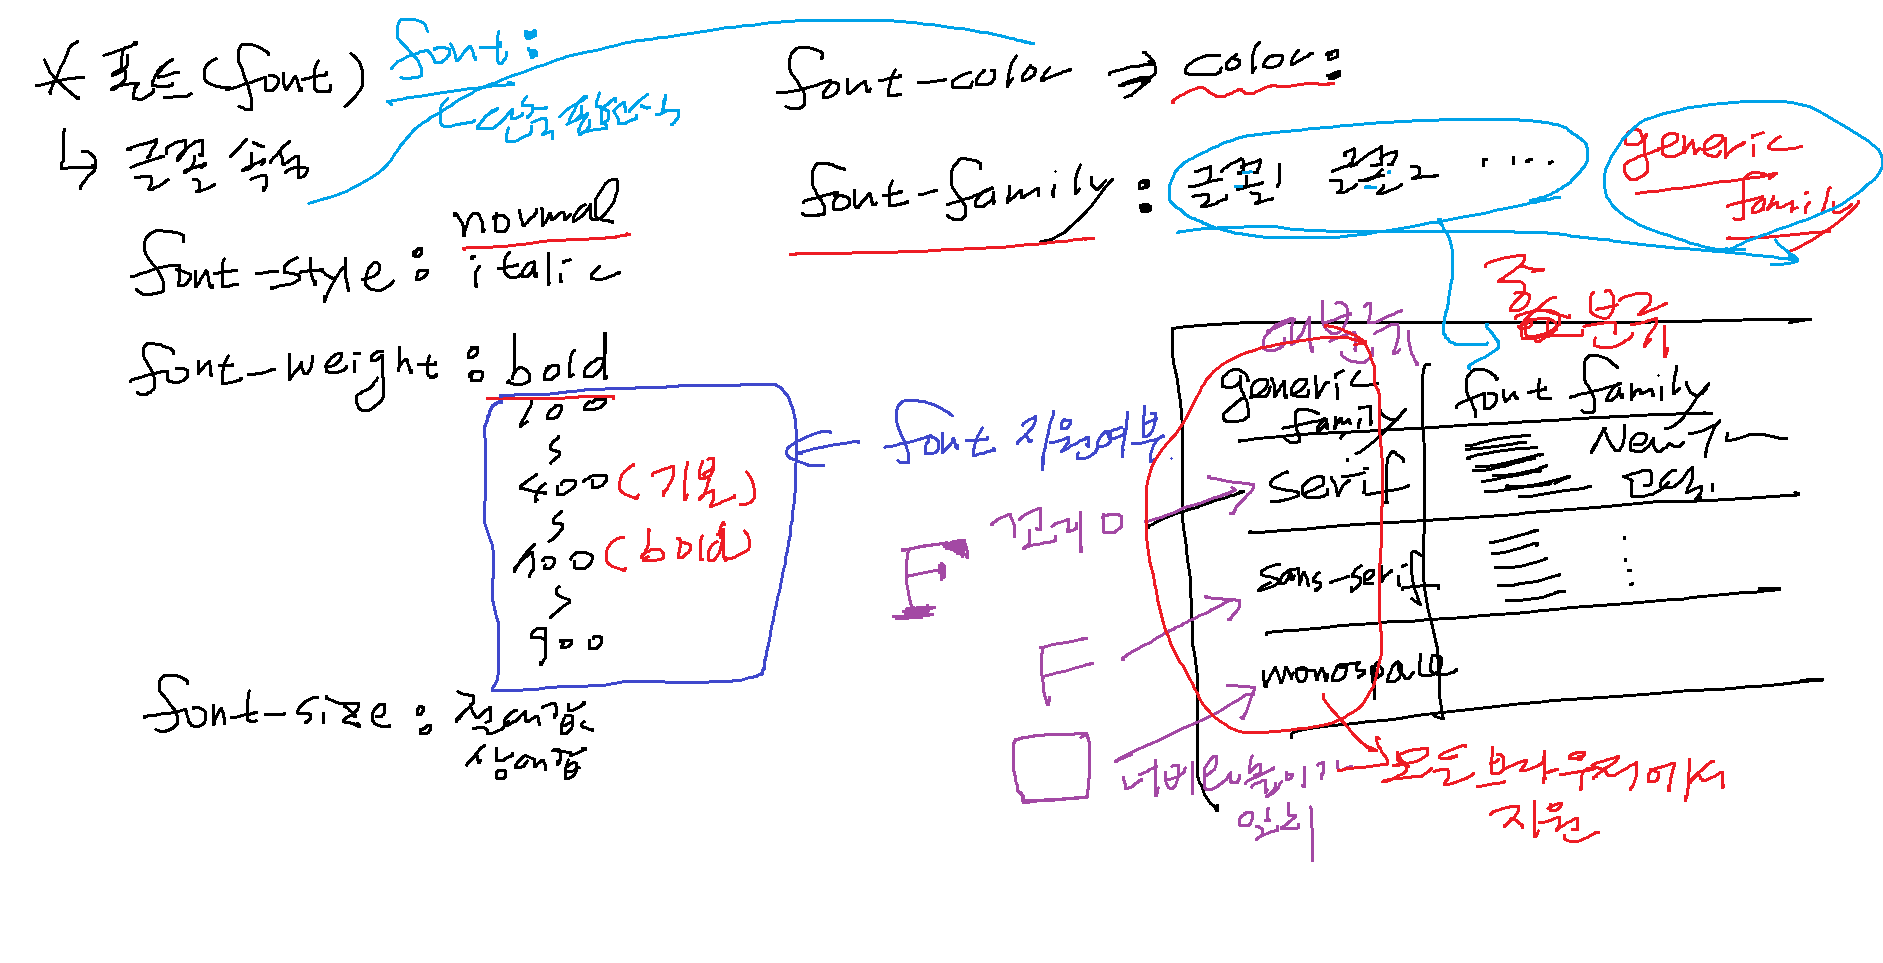 * 폰트(font) font:
↳ 글꼴 속성
단축 표현식
font-style: normal
italic
font-weight: bold
100
400 (기본)
700 (bold)
900
font 지원여부
font-size: 절대값
상대값
font-color ⇒ color:
font-family: 글꼴1 글꼴2 ....
generic
family
대분류
중분류
generic
family
font family
serif
New
sans-serif
monospace
꼬리 O
F
F
너비와 높이가
일치
모든 브라우저에서
지원